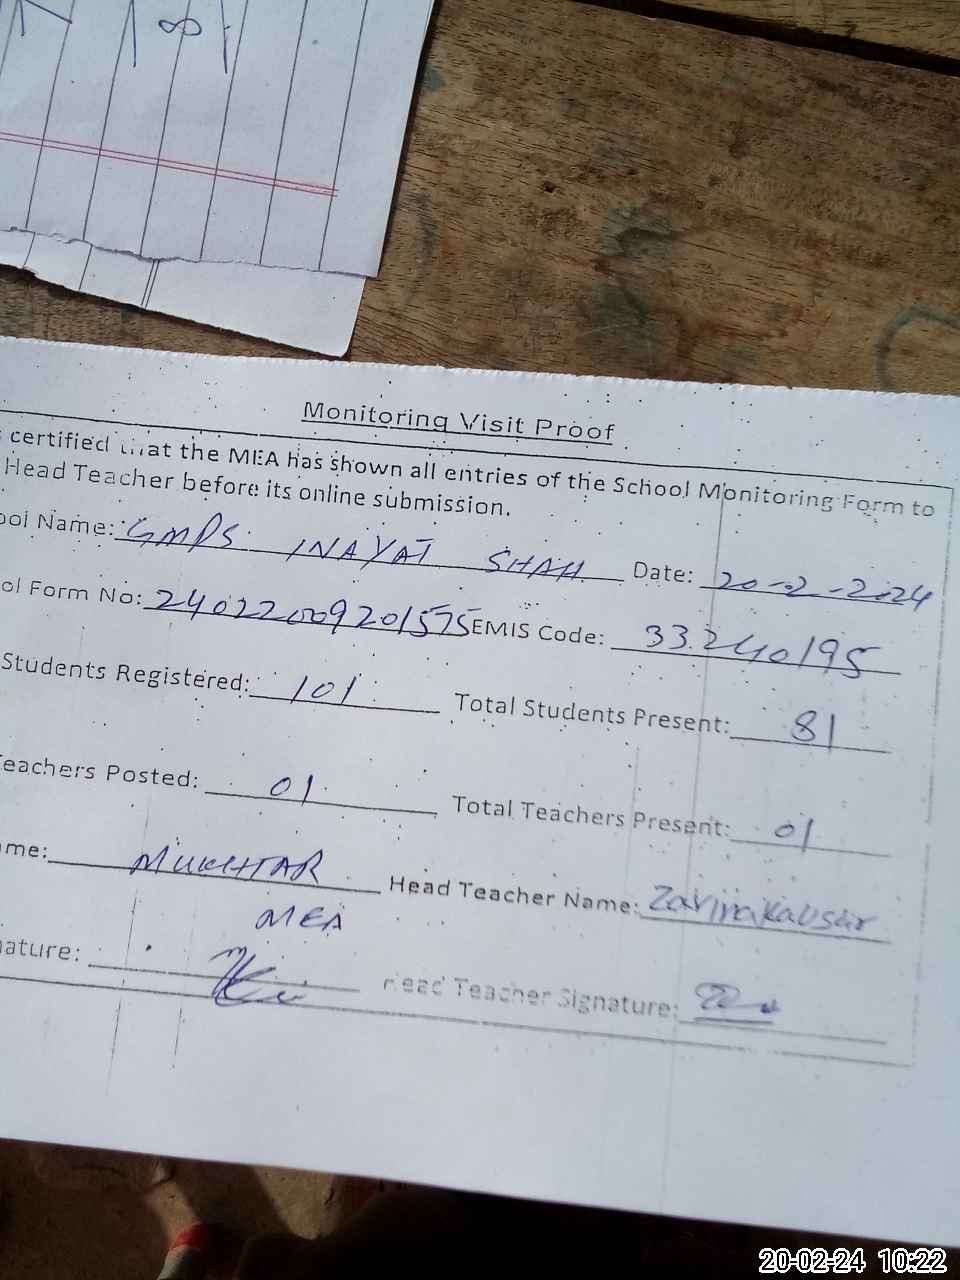 Monitoring Visit Proof
certified that the MEA has shown all entries of the School Monitoring Form to
Head Teacher before its online submission.
ool Name: GMPS INAYAT SHAH Date: 20-2-2024
ol Form No: 24022009201575 EMIS Code: 33240195
Students Registered: 101 Total Students Present: 81
eachers Posted: 01 Total Teachers Present: 01
me: MUKHTAR Head Teacher Name: Zarina Kausar
MEA
nature: Head Teacher Signature:
20-02-24 10:22